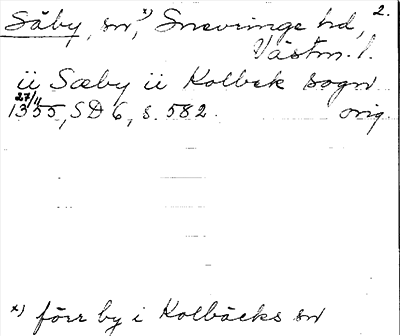 Säby, sn,x) Snevringe hd, 2.
Västm. l.
ii Sæby ii Kolbek sogn
27/11 1355, SD 6, s. 582. orig.
x) förr by i Kolbäcks sn